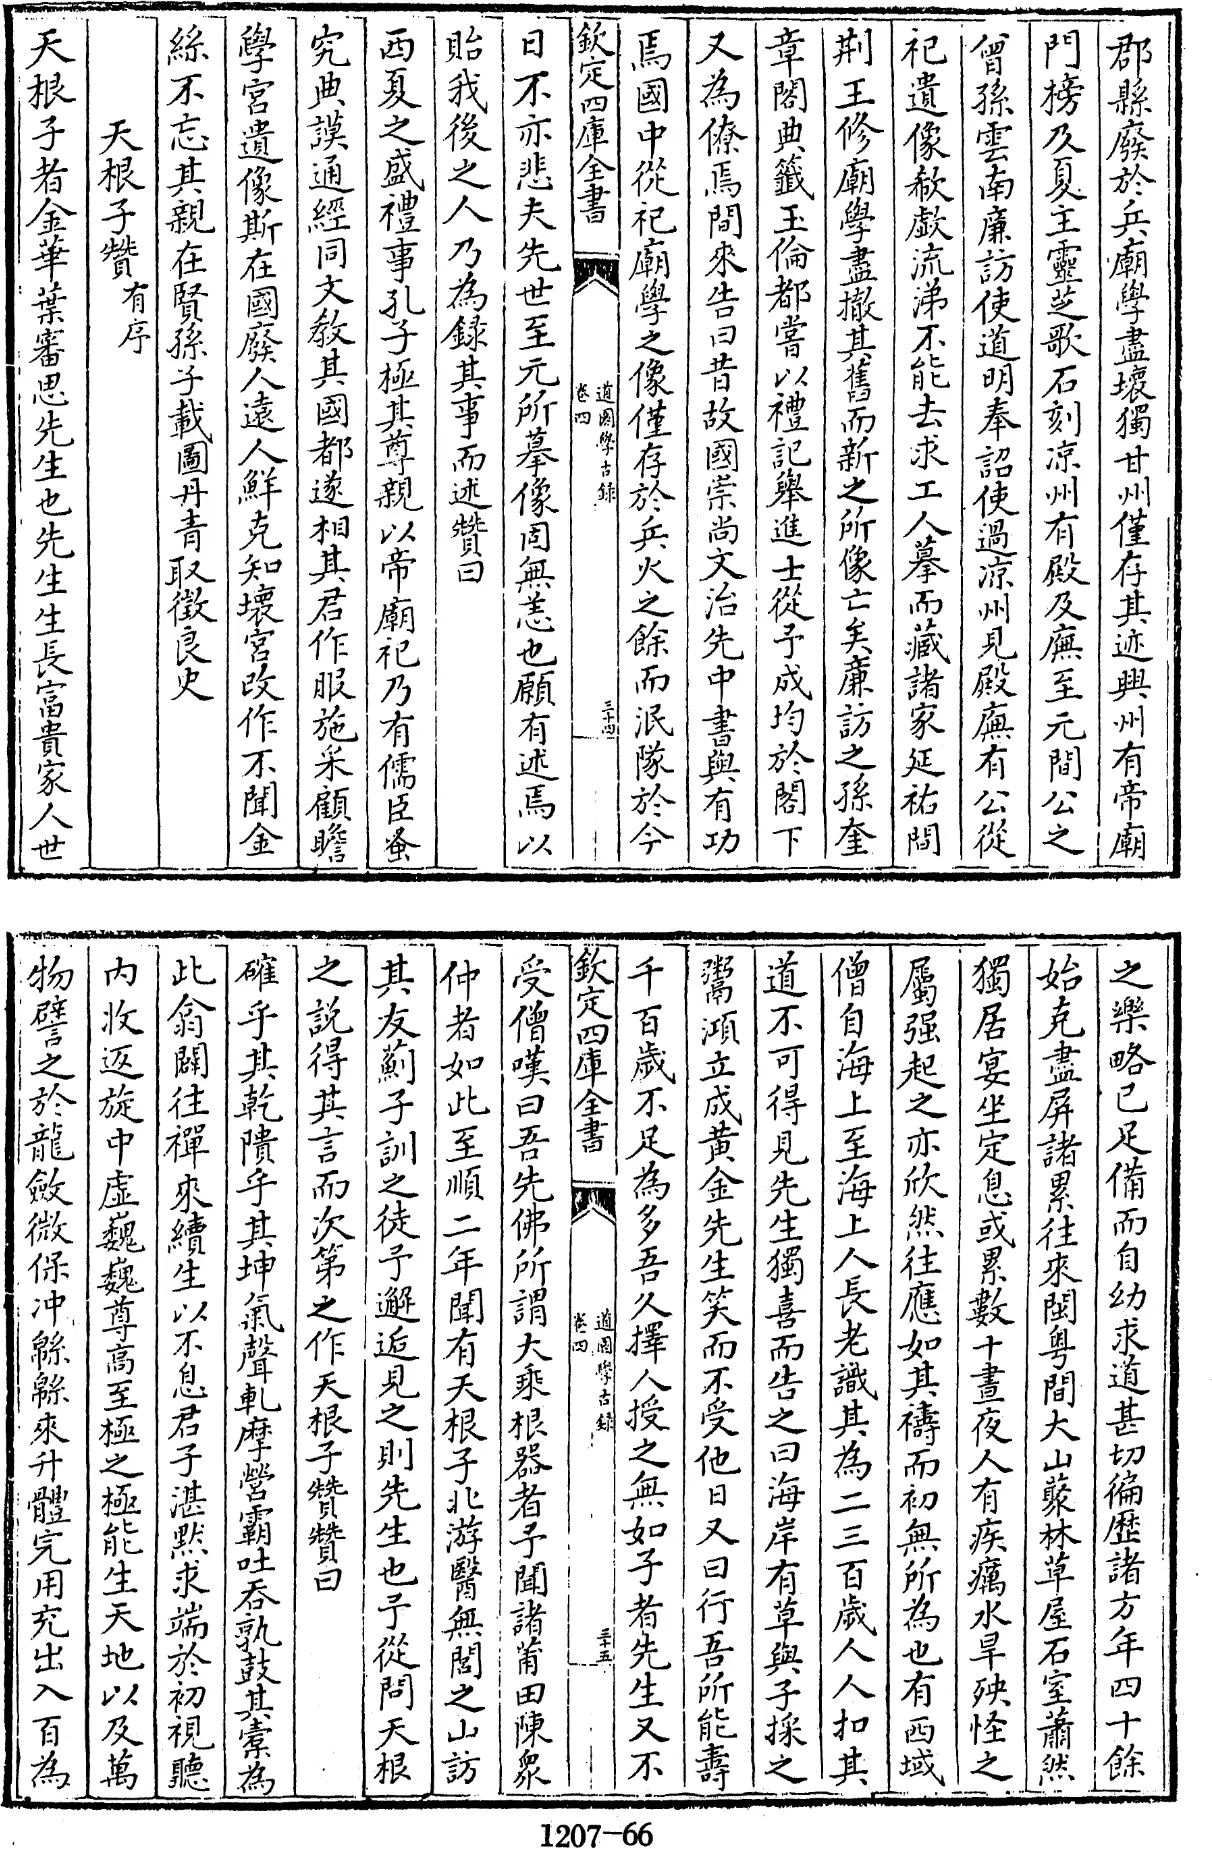 郡縣廢於兵廟學盡壞獨甘州僅存其迹興州有帝廟
門榜及夏主靈芝歌石刻凉州有殿及廡至元間公之
曾孫雲南廉訪使道明奉詔使過凉州見殿廡有公從
祀遺像欷歔流涕不能去求工人摹而藏諸家延祐間
荆王修廟學盡撤其舊而新之所像亡矣廉訪之孫奎
章閣典籤玉倫都嘗以禮記舉進士從予成均於閣下
又為僚焉間來告曰昔故國崇尚文治先中書與有功
焉國中從祀廟學之像僅存於兵火之餘而泯隊於今
欽定四庫全書
道園學古錄
卷四
三十四
日不亦悲夫先世至元所摹像固無恙也願有述焉以
貽我後之人乃為録其事而述贊曰
西夏之盛禮事孔子極其尊親以帝廟祀乃有儒臣蚤
究典謨通經同文教其國都遂相其君作服施采顧瞻
學宮遺像斯在國廢人遠人鮮克知壞宮改作不聞金
絲不忘其親在賢孫子載圖丹青取徵良史
天根子贊有序
天根子者金華葉審思先生也先生生長富貴家人世
之樂略已足備而自幼求道甚切徧歴諸方年四十餘
始克盡屏諸累往來閩粤間大山藂林草屋石室蕭然
獨居宴坐定息或累數十晝夜人有疾癘水旱殃怪之
屬强起之亦欣然往應如其禱而初無所為也有西域
僧自海上至海上人長老識其為二三百歲人人扣其
道不可得見先生獨喜而告之曰海岸有草與子採之
鬻澒立成黃金先生笑而不受他日又曰行吾所能壽
千百歲不足為多吾久擇人授之無如子者先生又不
欽定四庫全書
道園學古錄
卷四
三十五
受僧嘆曰吾先佛所謂大乘根器者予聞諸莆田陳衆
仲者如此至順二年聞有天根子北游醫無閭之山訪
其友薊子訓之徒予邂逅見之則先生也予從問天根
之說得其言而次第之作天根子贊贊曰
確乎其乾隤乎其坤氣聲軋摩營霸吐吞孰鼓其橐為
此翕闢往禪來續生以不息君子湛默求端於初視聽
内收返旋中虛巍巍尊高至極之極能生天地以及萬
物譬之於龍斂微保冲緜緜來升體完用充出入百為
1207—66